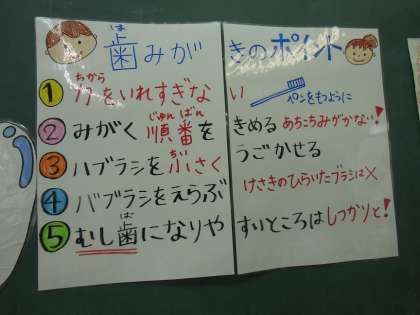 歯みがきのポイント
はみ
① 力をいれすぎない
ちから
ペンをもつように
② みがく順番をきめる
じゅんばん
あちこちみがかない!
③ ハブラシを小さくうごかせる
ちい
④ ハブラシをえらぶ
けさきのひらいたブラシは×
⑤ むし歯になりやすいところはしっかりと!
ば